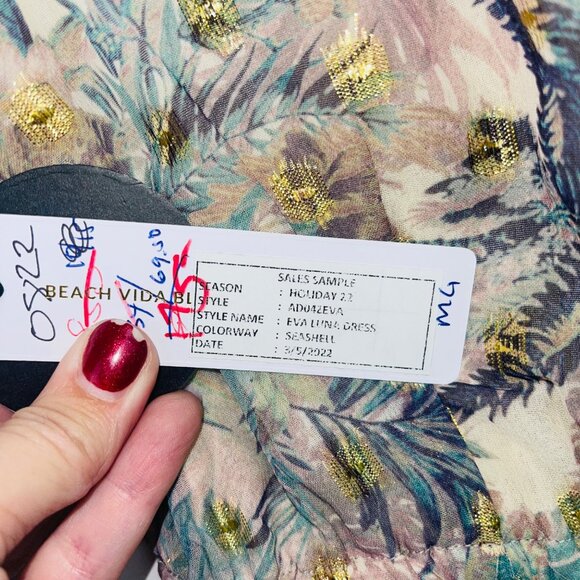 0822
BEACH VIDA BL
69.50
175
SALES SAMPLE
SEASON : HOLIDAY 22
STYLE : AD042EVA
STYLE NAME : EVA LUNA DRESS
COLORWAY : SEASHELL
DATE : 3/5/2022
MG